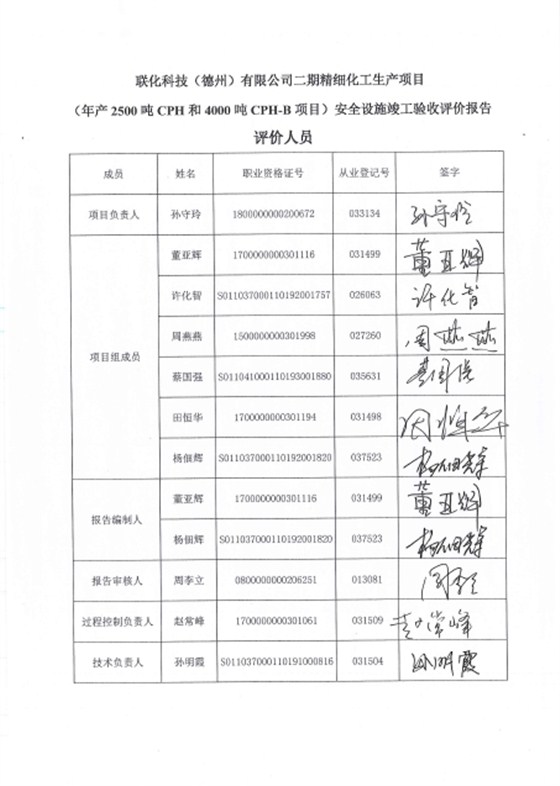 联化科技（德州）有限公司二期精细化工生产项目
（年产 2500 吨 CPH 和 4000 吨 CPH-B 项目）安全设施竣工验收评价报告
评价人员
成员 姓名 职业资格证号 从业登记号 签字
项目负责人 孙守玲 1800000000200672 033134 孙守玲
项目组成员
董亚辉 1700000000301116 031499 董亚辉
许化智 S011037000110192001757 026063 许化智
周燕燕 1500000000301998 027260 周燕燕
蔡国强 S011041000110193001880 035631 蔡国强
田恒华 1700000000301194 031498 田恒华
杨佃辉 S011037000110192001820 037523 杨佃辉
报告编制人
董亚辉 1700000000301116 031499 董亚辉
杨佃辉 S011037000110192001820 037523 杨佃辉
报告审核人 周李立 0800000000206251 013081 周李立
过程控制负责人 赵常峰 1700000000301061 031509 赵常峰
技术负责人 孙明霞 S011037000110191000816 031504 孙明霞